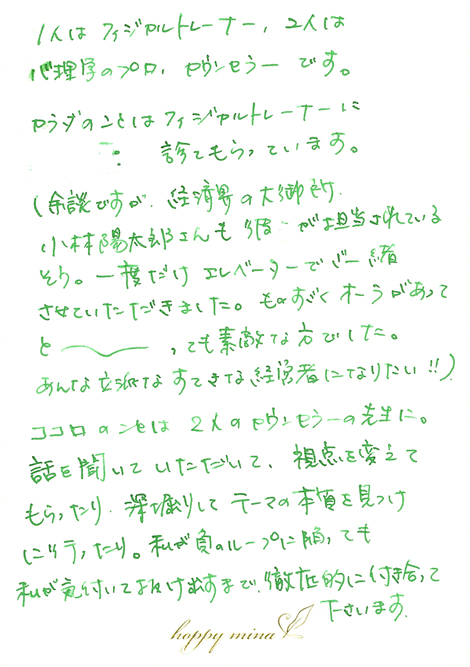 1人は フィジカルトレーナー、2人は
心理学のプロ、カウンセラー です。
カラダのことはフィジカルトレーナーに
診てもらっています。
(余談ですが、経済界の大御所、
小林陽太郎さんも 彼 が担当されている
そう。一度だけ エレベーターでご一緒
させていただきました。ものすごく オーラがあって
と 〜 っても素敵な方でした。
あんな立派な すてきな経営者になりたい!!)
ココロのことは 2人のカウンセラーの先生に。
話を聞いて いただいて、視点を変えて
もらったり、深堀りして テーマの本質を見つけ
に行ったり。私が負のループに陥っても
私が気付いて抜け出すまで、徹底的に付き合って
下さいます。
happy mina